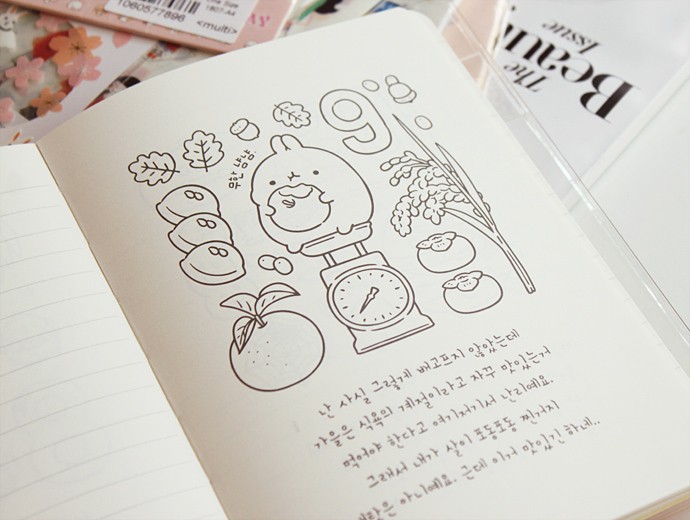 One Size
1807-A4
1060577896
<multi>
The
Beau
Issue
9
무한 냠냠.
난 사실 그렇게 배고프지 않았는데
가을은 식욕의 계절이라고 자꾸 맛있는거
먹어야 한다고 여기저기서 난리예요.
그래서 내가 살이 포동포동 찐거지
은 아니예요. 근데 이거 맛있긴 하네..